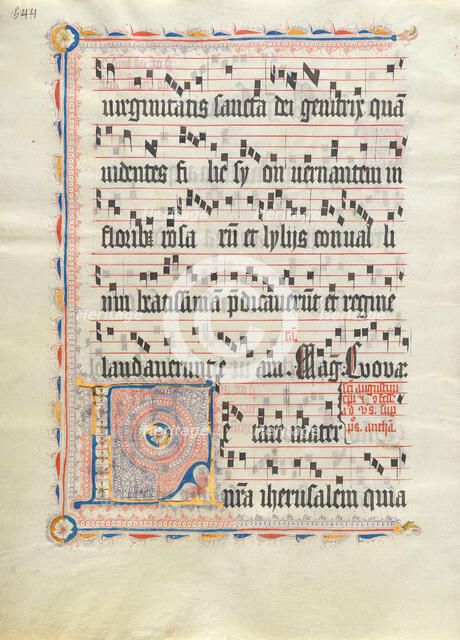 644
uirginitatis sancta dei genitrix quã
uidentes fi lie sy on uernantem in
floribꝫ rosa rũ et lylijs conual li
um beatissimã p̃dicauerũt et regine
laudauerunt e am. Mag. Euouae
cã.
sci augustini
ad vs. sup
ps. anthã.
Le tare mater
nr̃a iherusalem quia